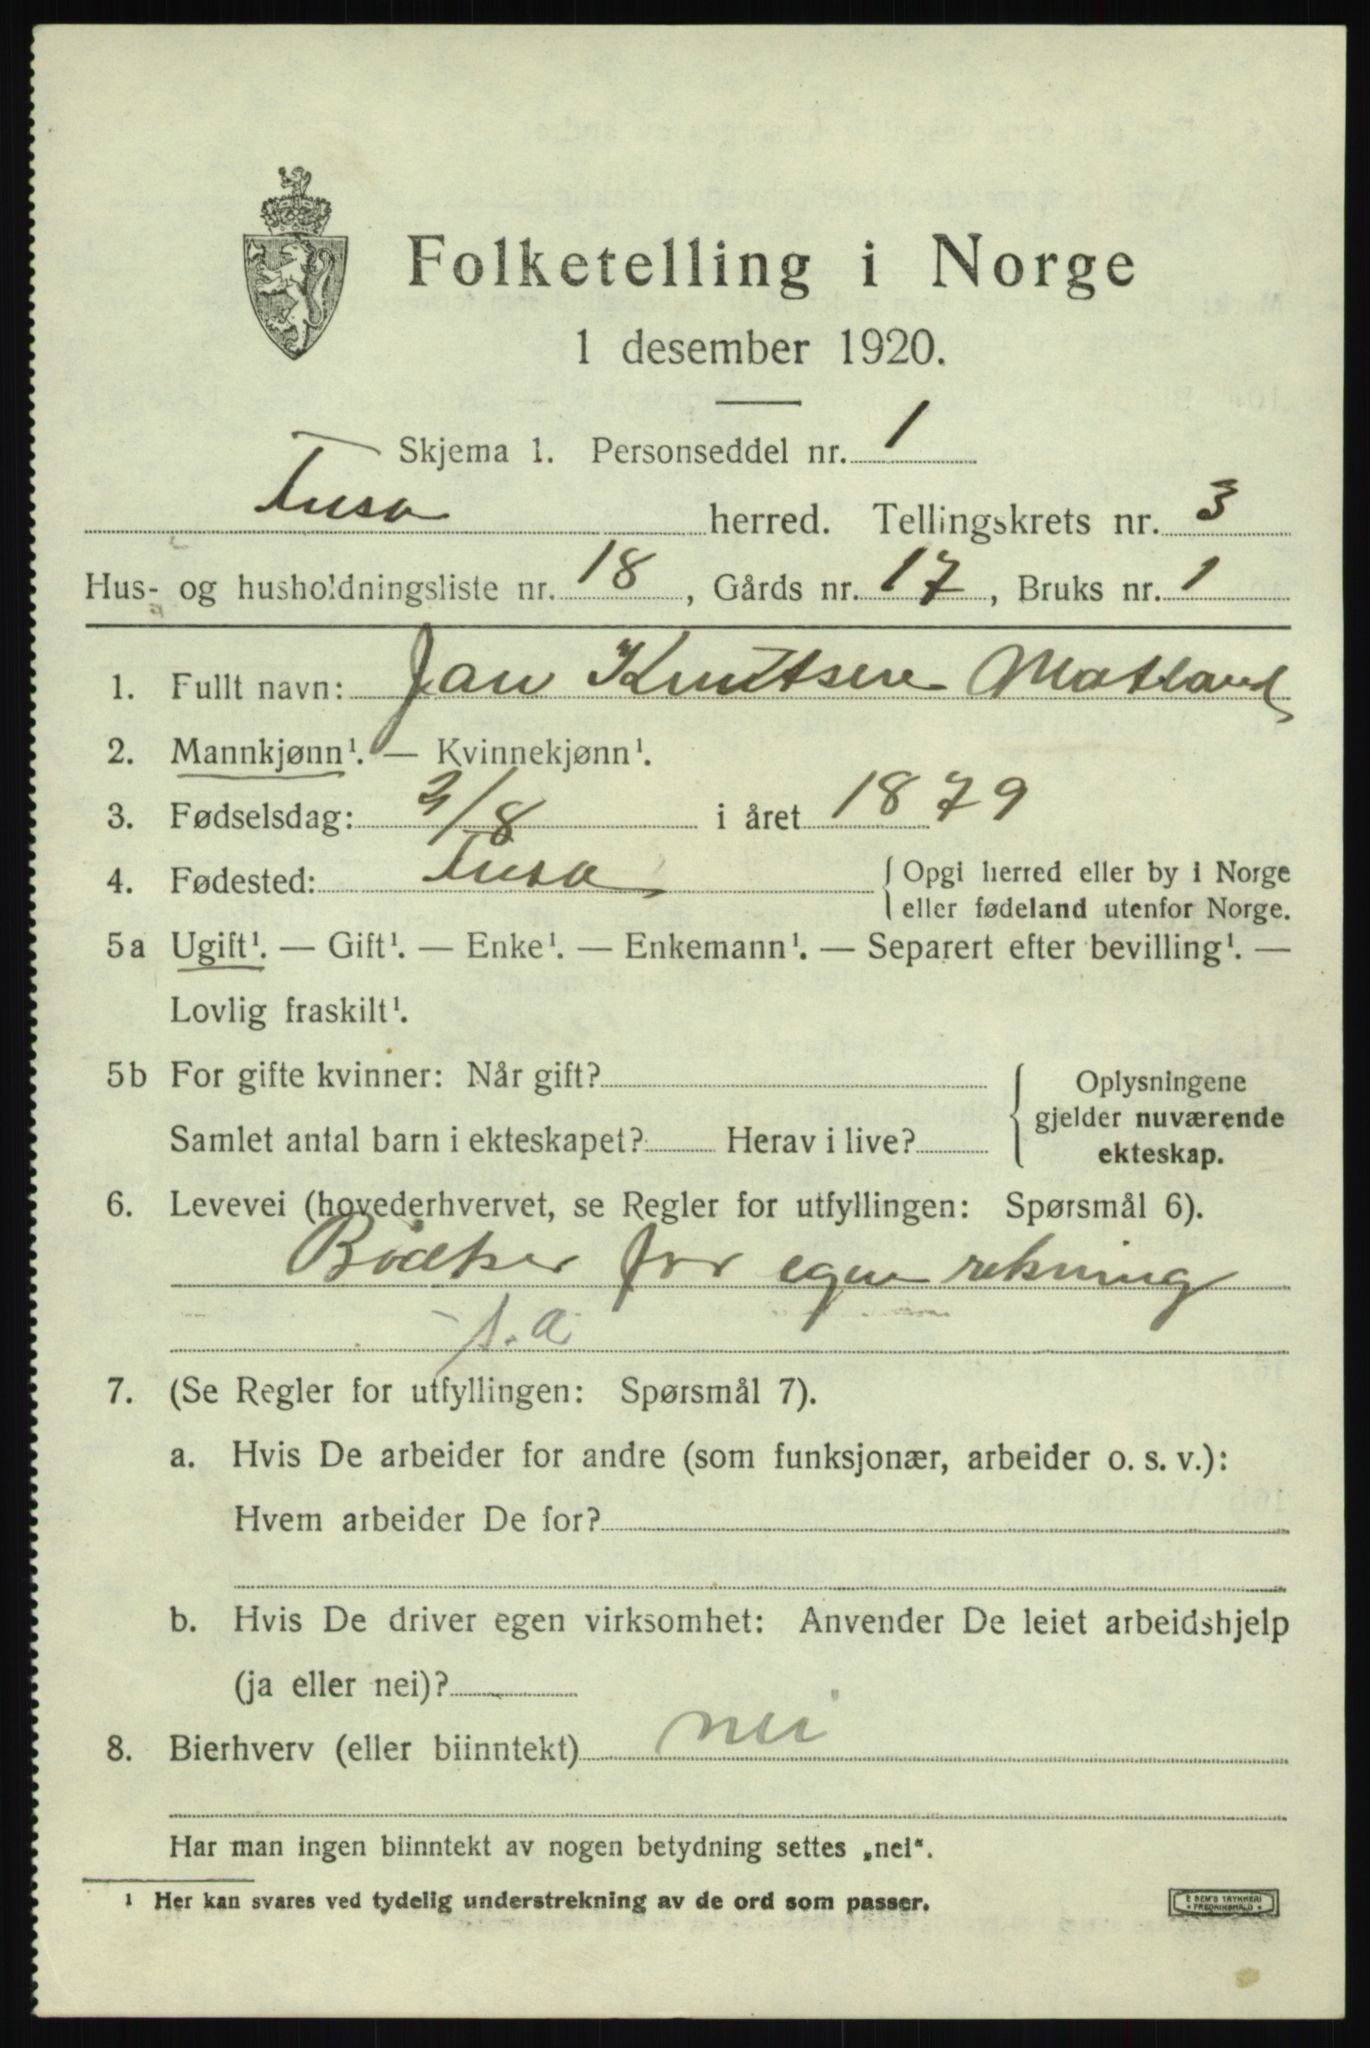 Folketelling i Norge
1 desember 1920.
Skjema 1. Personseddel nr. 1
Fusa herred. Tellingskrets nr. 3
Hus- og husholdningsliste nr. 18, Gårds nr. 17, Bruks nr. 1
1. Fullt navn: Jan Knutsen Matland
2. Mannkjønn¹. — Kvinnekjønn¹.
3. Fødselsdag: 3/8 i året 1879
4. Fødested: Fusa { Opgi herred eller by i Norge
eller fødeland utenfor Norge.
5a Ugift¹. — Gift¹. — Enke¹. — Enkemann¹. — Separert efter bevilling¹. —
Lovlig fraskilt¹.
5b For gifte kvinner: Når gift?
Samlet antal barn i ekteskapet? Herav i live?
{ Oplysningene
gjelder nuværende
ekteskap.
6. Levevei (hovederhvervet, se Regler for utfyllingen: Spørsmål 6).
Bödker for egen rekning
s.a
7. (Se Regler for utfyllingen: Spørsmål 7).
a. Hvis De arbeider for andre (som funksjonær, arbeider o. s. v.):
Hvem arbeider De for?
b. Hvis De driver egen virksomhet: Anvender De leiet arbeidshjelp
(ja eller nei)?
8. Bierhverv (eller biinntekt) nei
Har man ingen biinntekt av nogen betydning settes „nei“.
¹ Her kan svares ved tydelig understrekning av de ord som passer.
E SEM'S TRYKKERI
* FREDRIKSHALD *